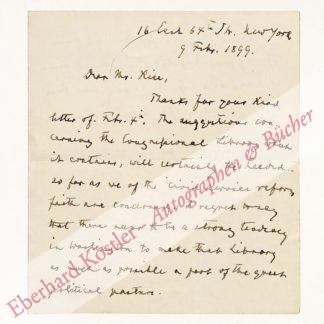 16 East 64th St. New York
9 Feb. 1899.
Dear Mr. Rice,
Thanks for your kind
letter of Feb. 4th. The suggestions con-
cerning the Congressional Library which
it contains, will certainly be heeded
so far as we of the civil service reform
faith are concerned. I regret to say
that there seems to be a strong tendency
in Washington to make that Library
as much as possible a part of the great
political pasture.
Eberhard Köstler - Autographen & Bücher